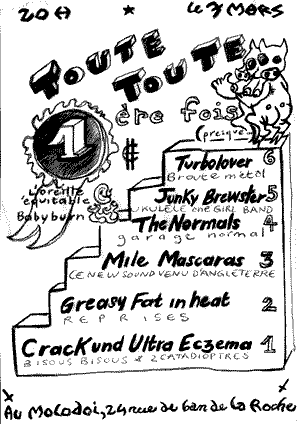 20H * Le 7 MARS
TOUTE TOUTE
1 ère fois
(presque...
L'oreille
équitable
Babyburn
Turbolover 6
Brute metal
Junky Brewster 5
UKULELE ONE GIRL BAND
The Normals 4
garage normal
Mile Mascaras 3
(LE NEW SOUND VENU D'ANGLETERRE
Greasy Fat in heat 2
REPRISES
Crack und Ultra Eczema 1
BISOUS BISOUS & 2 CATADIOPTRES
Au Molodoi, 24 rue de ban de La Roche